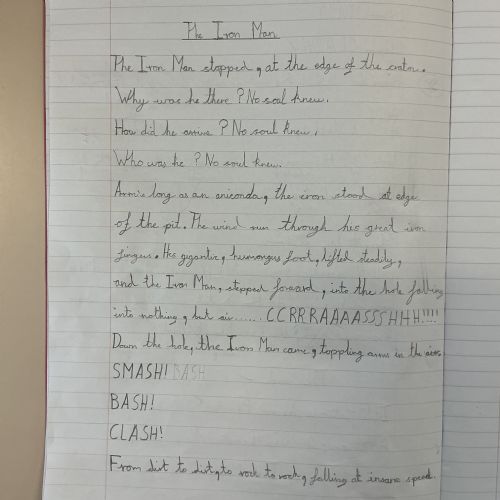 The Iron Man
The Iron Man stopped, at the edge of the crator.
Why was he there? No soul knew.
How did he arrive? No soul knew.
Who was he? No soul knew.
Arms long as an aniconda, the iron stood at edge
of the pit. The wind run through his great iron
fingers. His gigantic, humongus foot, lifted steadily,
and the Iron Man, stepped forward, into the hole falling
into nothing, but air...... CCRRRAAAASSSHHH!!!!
Down the hole, the Iron Man came, toppling arms in the air.
SMASH! BASH
BASH!
CLASH!
From dirt to dirt, to rock to rock, falling at insane speed.